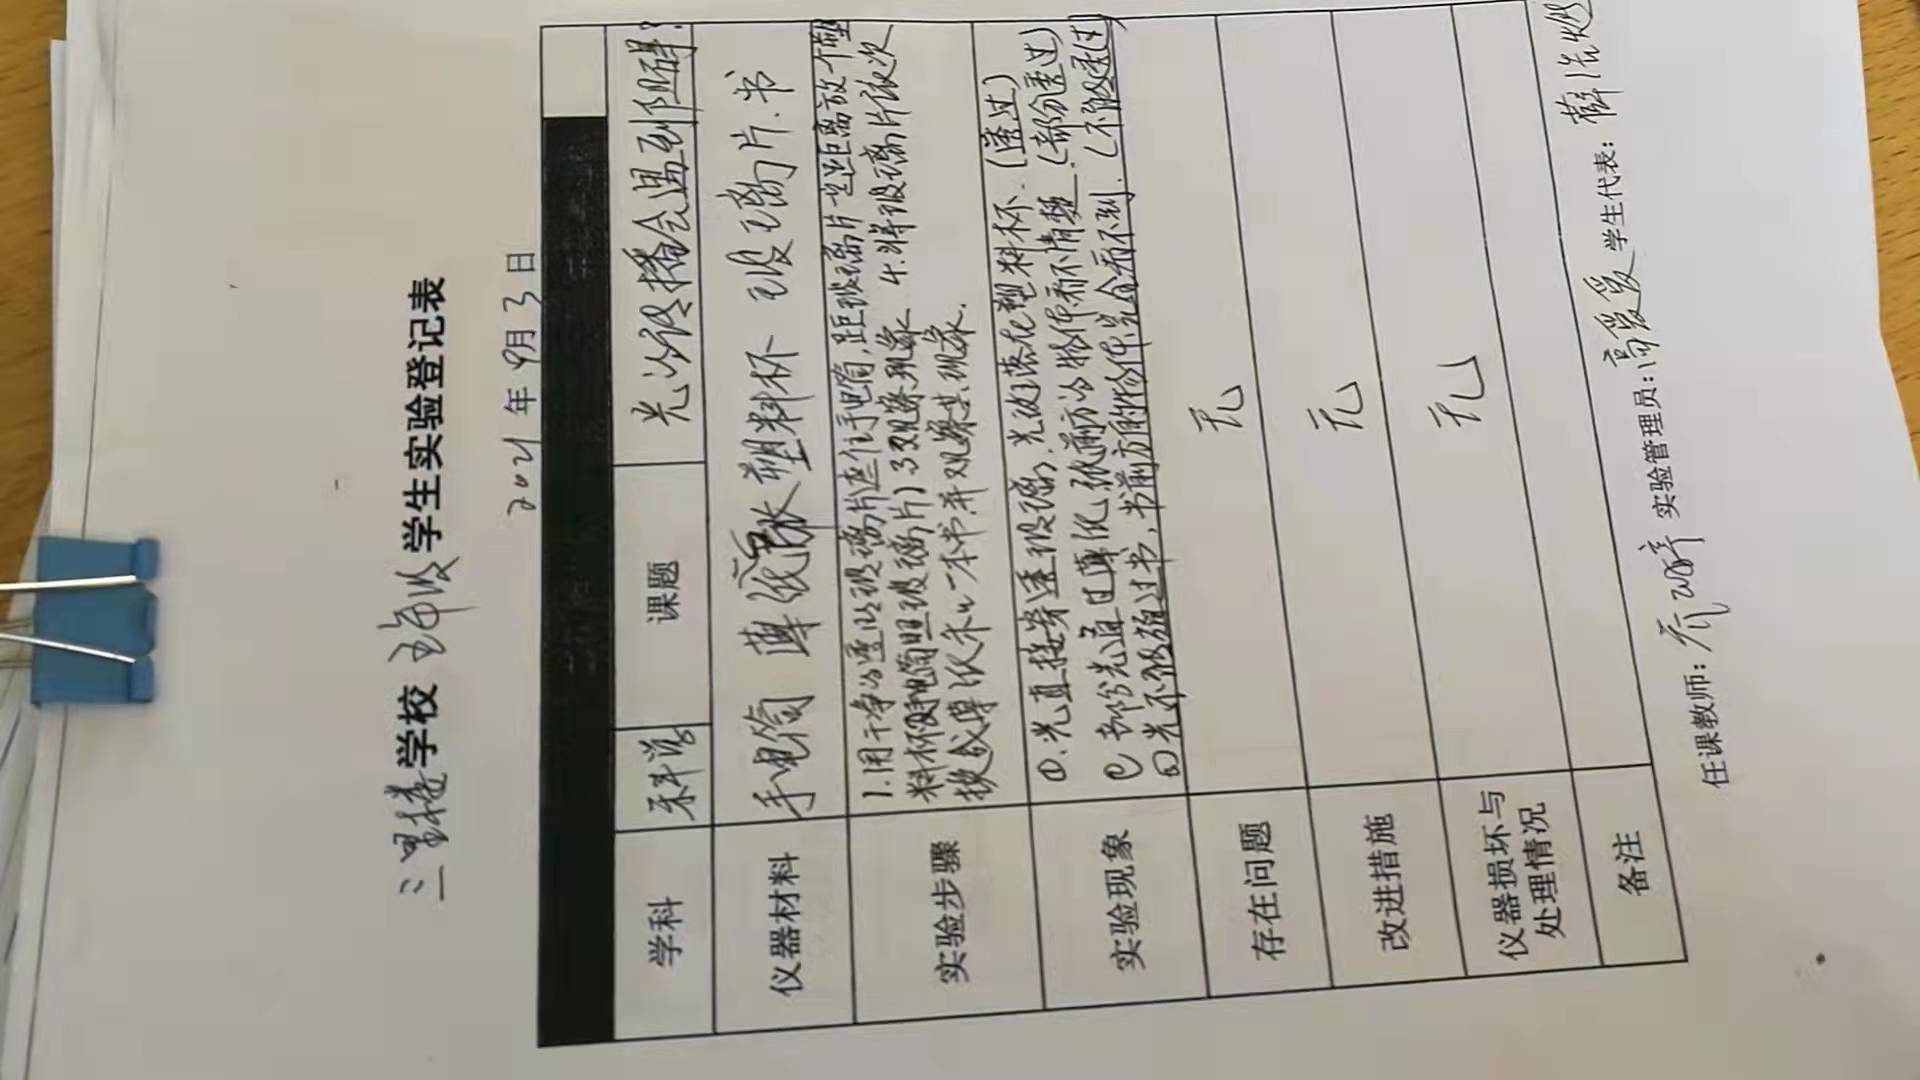 三里塘学校 学生实验登记表
2021年9月3日
学科 科学 课题 光的传播会遇到阻碍?
仪器材料 手电筒 薄纸 塑料杯 玻璃片.书
实验步骤
1.用干净的透明玻璃片遮住手电筒,距玻璃片一定距离放个塑
料杯 手电筒照玻璃片 3观察现象 4.将玻璃片依次
换成薄纸 一本书并观察其现象.
实验现象
①.光直接穿透玻璃.光斑落在塑料杯.(透过)
部份光通过薄纸,纸前方的物体看不清楚.(部分透过)
光不能通过书,书前方的物体完全看不到.(不能透过)
存在问题 无
改进措施 无
仪器损坏与
处理情况 无
备注
任课教师: 实验管理员:高爱爱 学生代表: